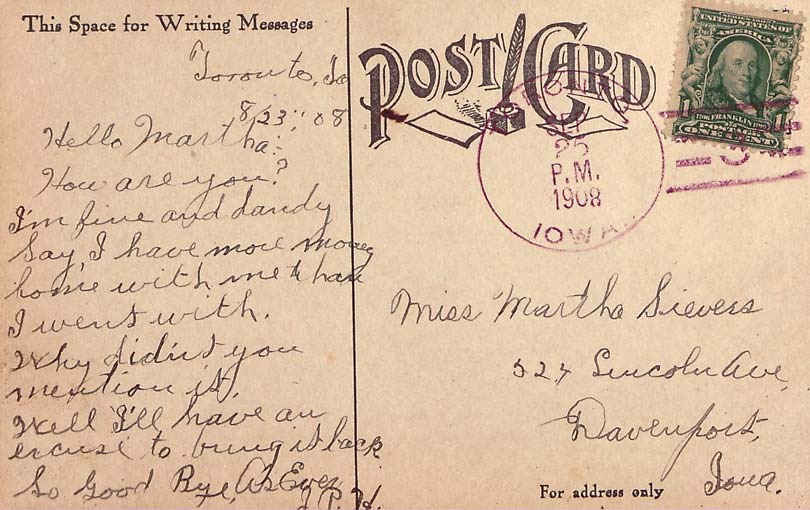 This Space for Writing Messages
Toronto, Ia
8/23, 08
Hello Martha:-
How are you?
I'm fine and dandy
Say, I have more money
home with me than
I went with.
Why didn't you
mention it.
Well I'll have an
excuse to bring it back
So Good Bye, As Ever
J. P. H.
POST CARD
25
P.M.
1908
IOWA.
UNITED STATES OF
AMERICA
1
FRANKLIN
POSTAGE
ONE CENT
Miss Martha Sievers
527 Lincoln Ave,
Davenport,
Iowa.
For address only